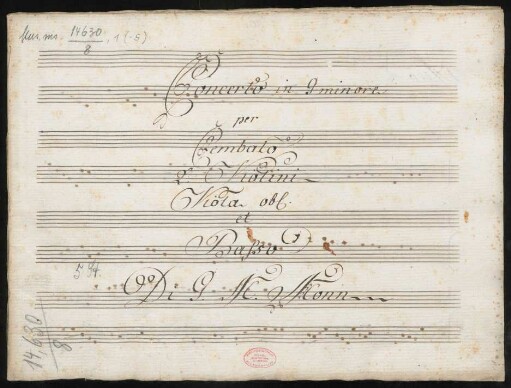 Mus. ms. 14630/8, 1 (-5)
Concerto in g minore
per
Cembalo
2 Violini
Viola obl.
et
Basso
5 St.
Di G. M. Monn
14,630/8